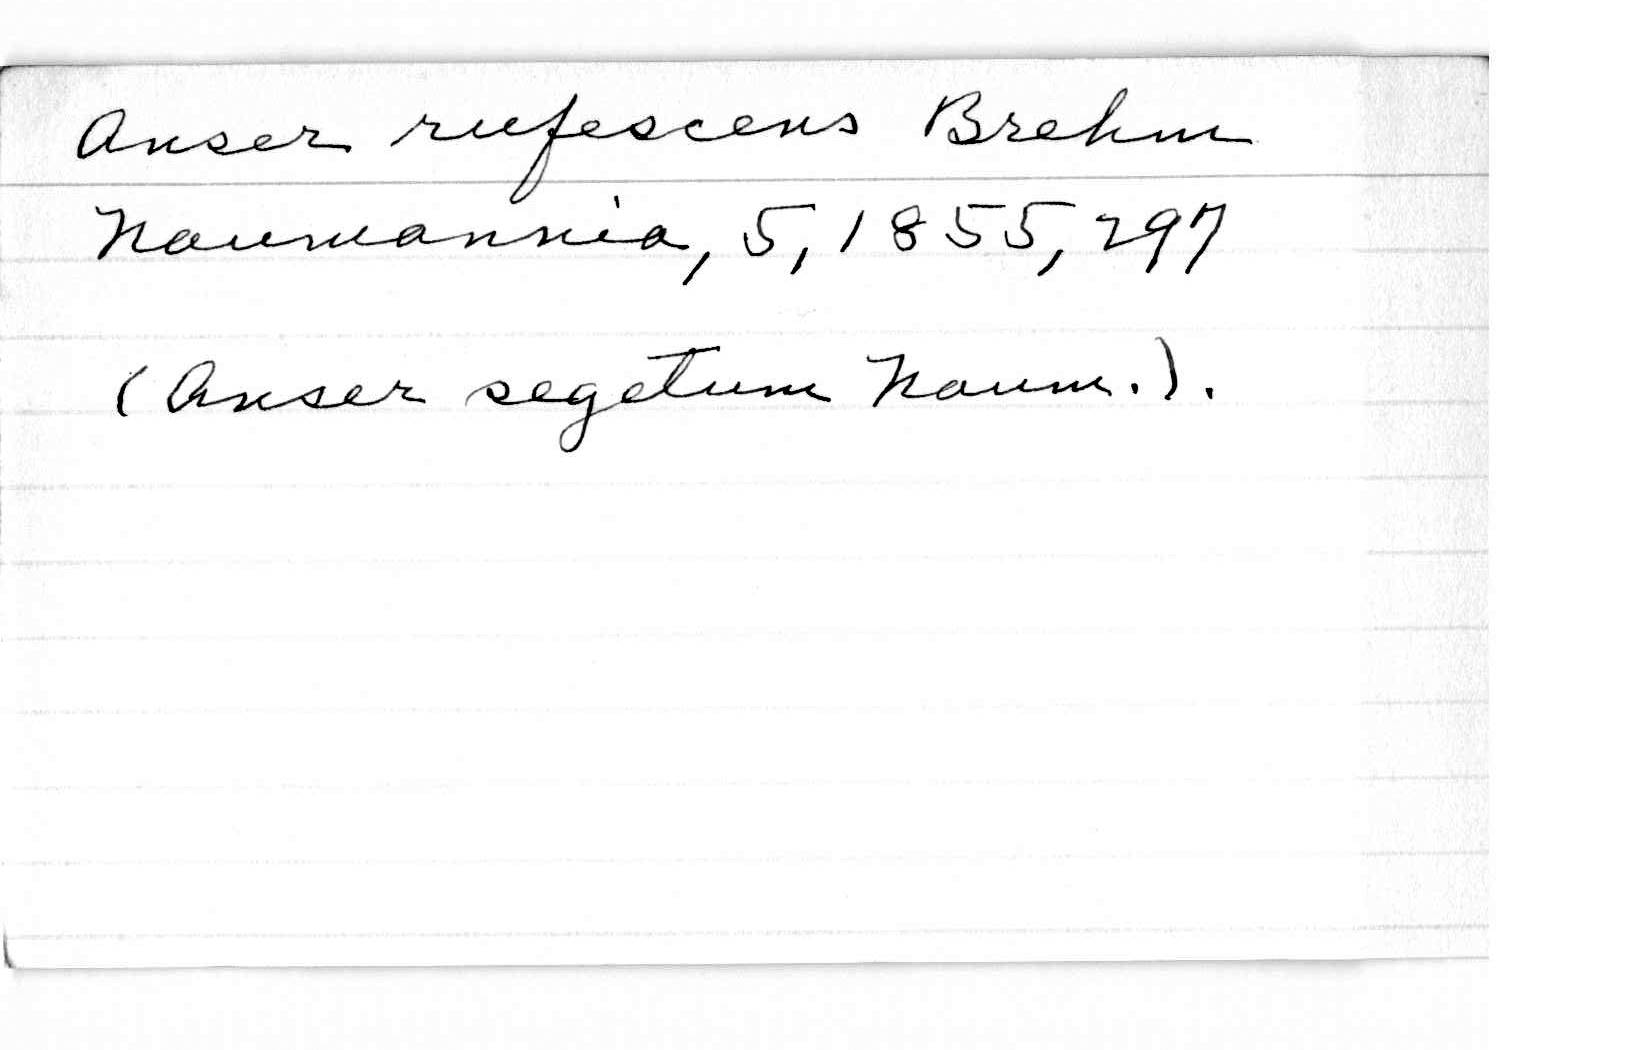 Anser rufescens Brehm
Naumannia, 5, 1855, 297
(Anser segetum Naum.).